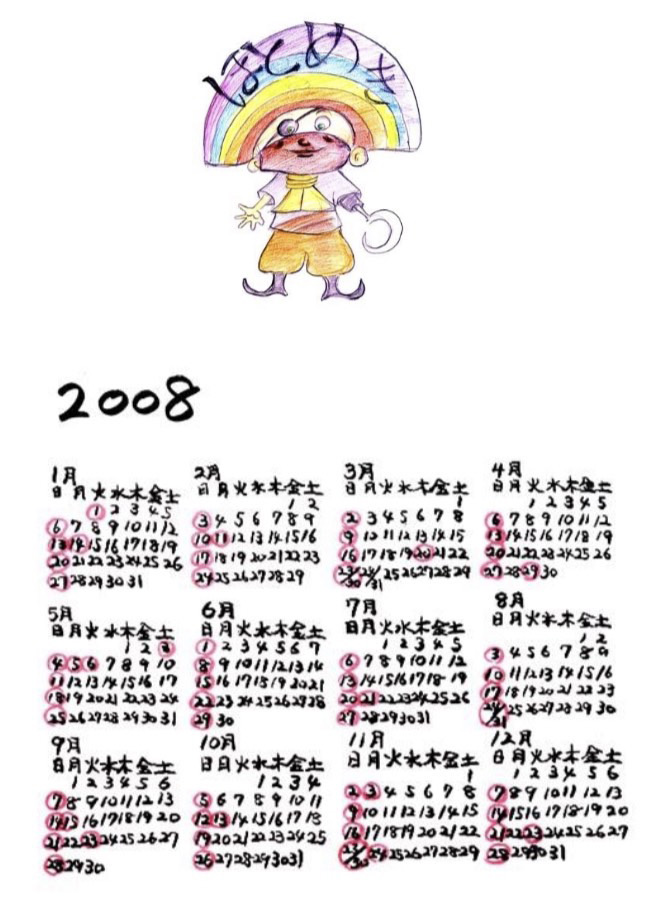 ほとめき
2008
1月
日月火水木金土
1 2 3 4 5
6 7 8 9 10 11 12
13 14 15 16 17 18 19
20 21 22 23 24 25 26
27 28 29 30 31
2月
日月火水木金土
1 2
3 4 5 6 7 8 9
10 11 12 13 14 15 16
17 18 19 20 21 22 23
24 25 26 27 28 29
3月
日月火水木金土
1
2 3 4 5 6 7 8
9 10 11 12 13 14 15
16 17 18 19 20 21 22
23/30 24/31 25 26 27 28 29
4月
日月火水木金土
1 2 3 4 5
6 7 8 9 10 11 12
13 14 15 16 17 18 19
20 21 22 23 24 25 26
27 28 29 30
5月
日月火水木金土
1 2 3
4 5 6 7 8 9 10
11 12 13 14 15 16 17
18 19 20 21 22 23 24
25 26 27 28 29 30 31
6月
日月火水木金土
1 2 3 4 5 6 7
8 9 10 11 12 13 14
15 16 17 18 19 20 21
22 23 24 25 26 27 28
29 30
7月
日月火水木金土
1 2 3 4 5
6 7 8 9 10 11 12
13 14 15 16 17 18 19
20 21 22 23 24 25 26
27 28 29 30 31
8月
日月火水木金土
1 2
3 4 5 6 7 8 9
10 11 12 13 14 15 16
17 18 19 20 21 22 23
24/31 25 26 27 28 29 30
9月
日月火水木金土
1 2 3 4 5 6
7 8 9 10 11 12 13
14 15 16 17 18 19 20
21 22 23 24 25 26 27
28 29 30
10月
日月火水木金土
1 2 3 4
5 6 7 8 9 10 11
12 13 14 15 16 17 18
19 20 21 22 23 24 25
26 27 28 29 30 31
11月
日月火水木金土
1
2 3 4 5 6 7 8
9 10 11 12 13 14 15
16 17 18 19 20 21 22
23/30 24 25 26 27 28 29
12月
日月火水木金土
1 2 3 4 5 6
7 8 9 10 11 12 13
14 15 16 17 18 19 20
21 22 23 24 25 26 27
28 29 30 31